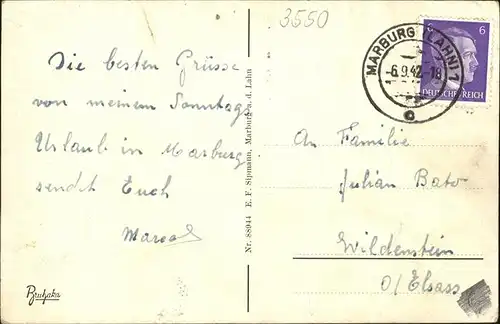 3550
Die besten Grüsse
von meinem Sonntags
Urlaub in Marburg
sendet Euch
Marcel
Bruhaka
Nr. 88944 E. F. Sipmann, Marburg a. d. Lahn
MARBURG (LAHN) 1
-6.9.42-18
c
6 6
DEUTSCHES REICH
An Familie
Julian Bato
Wildenstein
O/Elsass